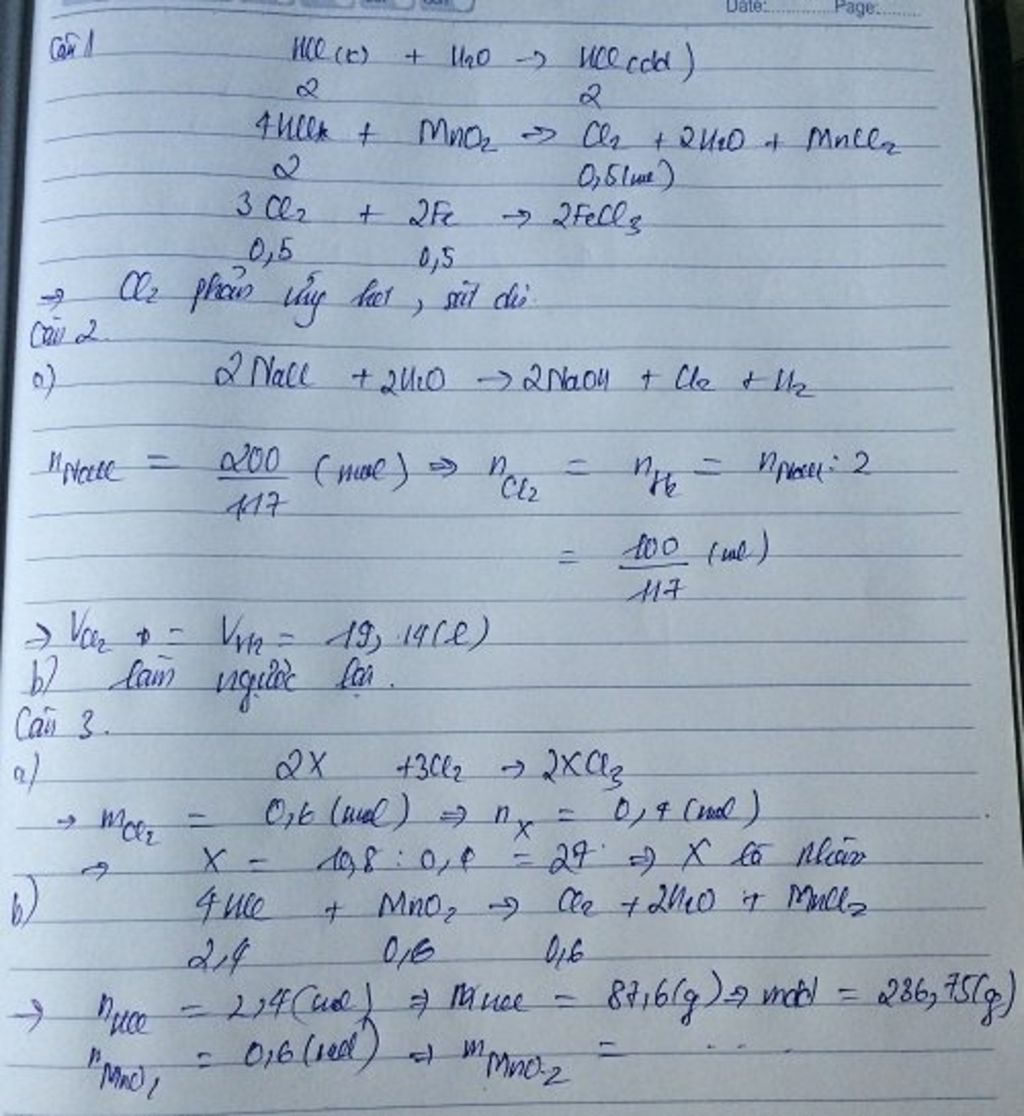 Date:............ Page:..........
Câu 1 HCl (k) + H2O → HCl (dd)
2 2
4HCl + MnO2 → Cl2 + 2H2O + MnCl2
2 0,5(mol)
3Cl2 + 2Fe → 2FeCl3
0,5 0,5
→ Cl2 phản ứng hết, sắt dư.
Câu 2.
a) 2NaCl + 2H2O → 2NaOH + Cl2 + H2
nNaCl = 200/117 (mol) ⇒ nCl2 = nH2 = nNaCl : 2
= 100/117 (mol)
→ VCl2 = VH2 = 19,14(l)
b) làm ngược lại.
Câu 3.
a) 2X + 3Cl2 → 2XCl3
→ mCl2 = 0,6 (mol) ⇒ nX = 0,4 (mol)
→ X = 10,8 : 0,4 = 27 ⇒ X là Nhôm
b) 4HCl + MnO2 → Cl2 + 2H2O + MnCl2
2,4 0,6 0,6
→ nHCl = 2,4(mol) ⇒ mHCl = 87,6(g) ⇒ mdd = 236,75(g)
nMnO2 = 0,6(mol) ⇒ mMnO2 = ...